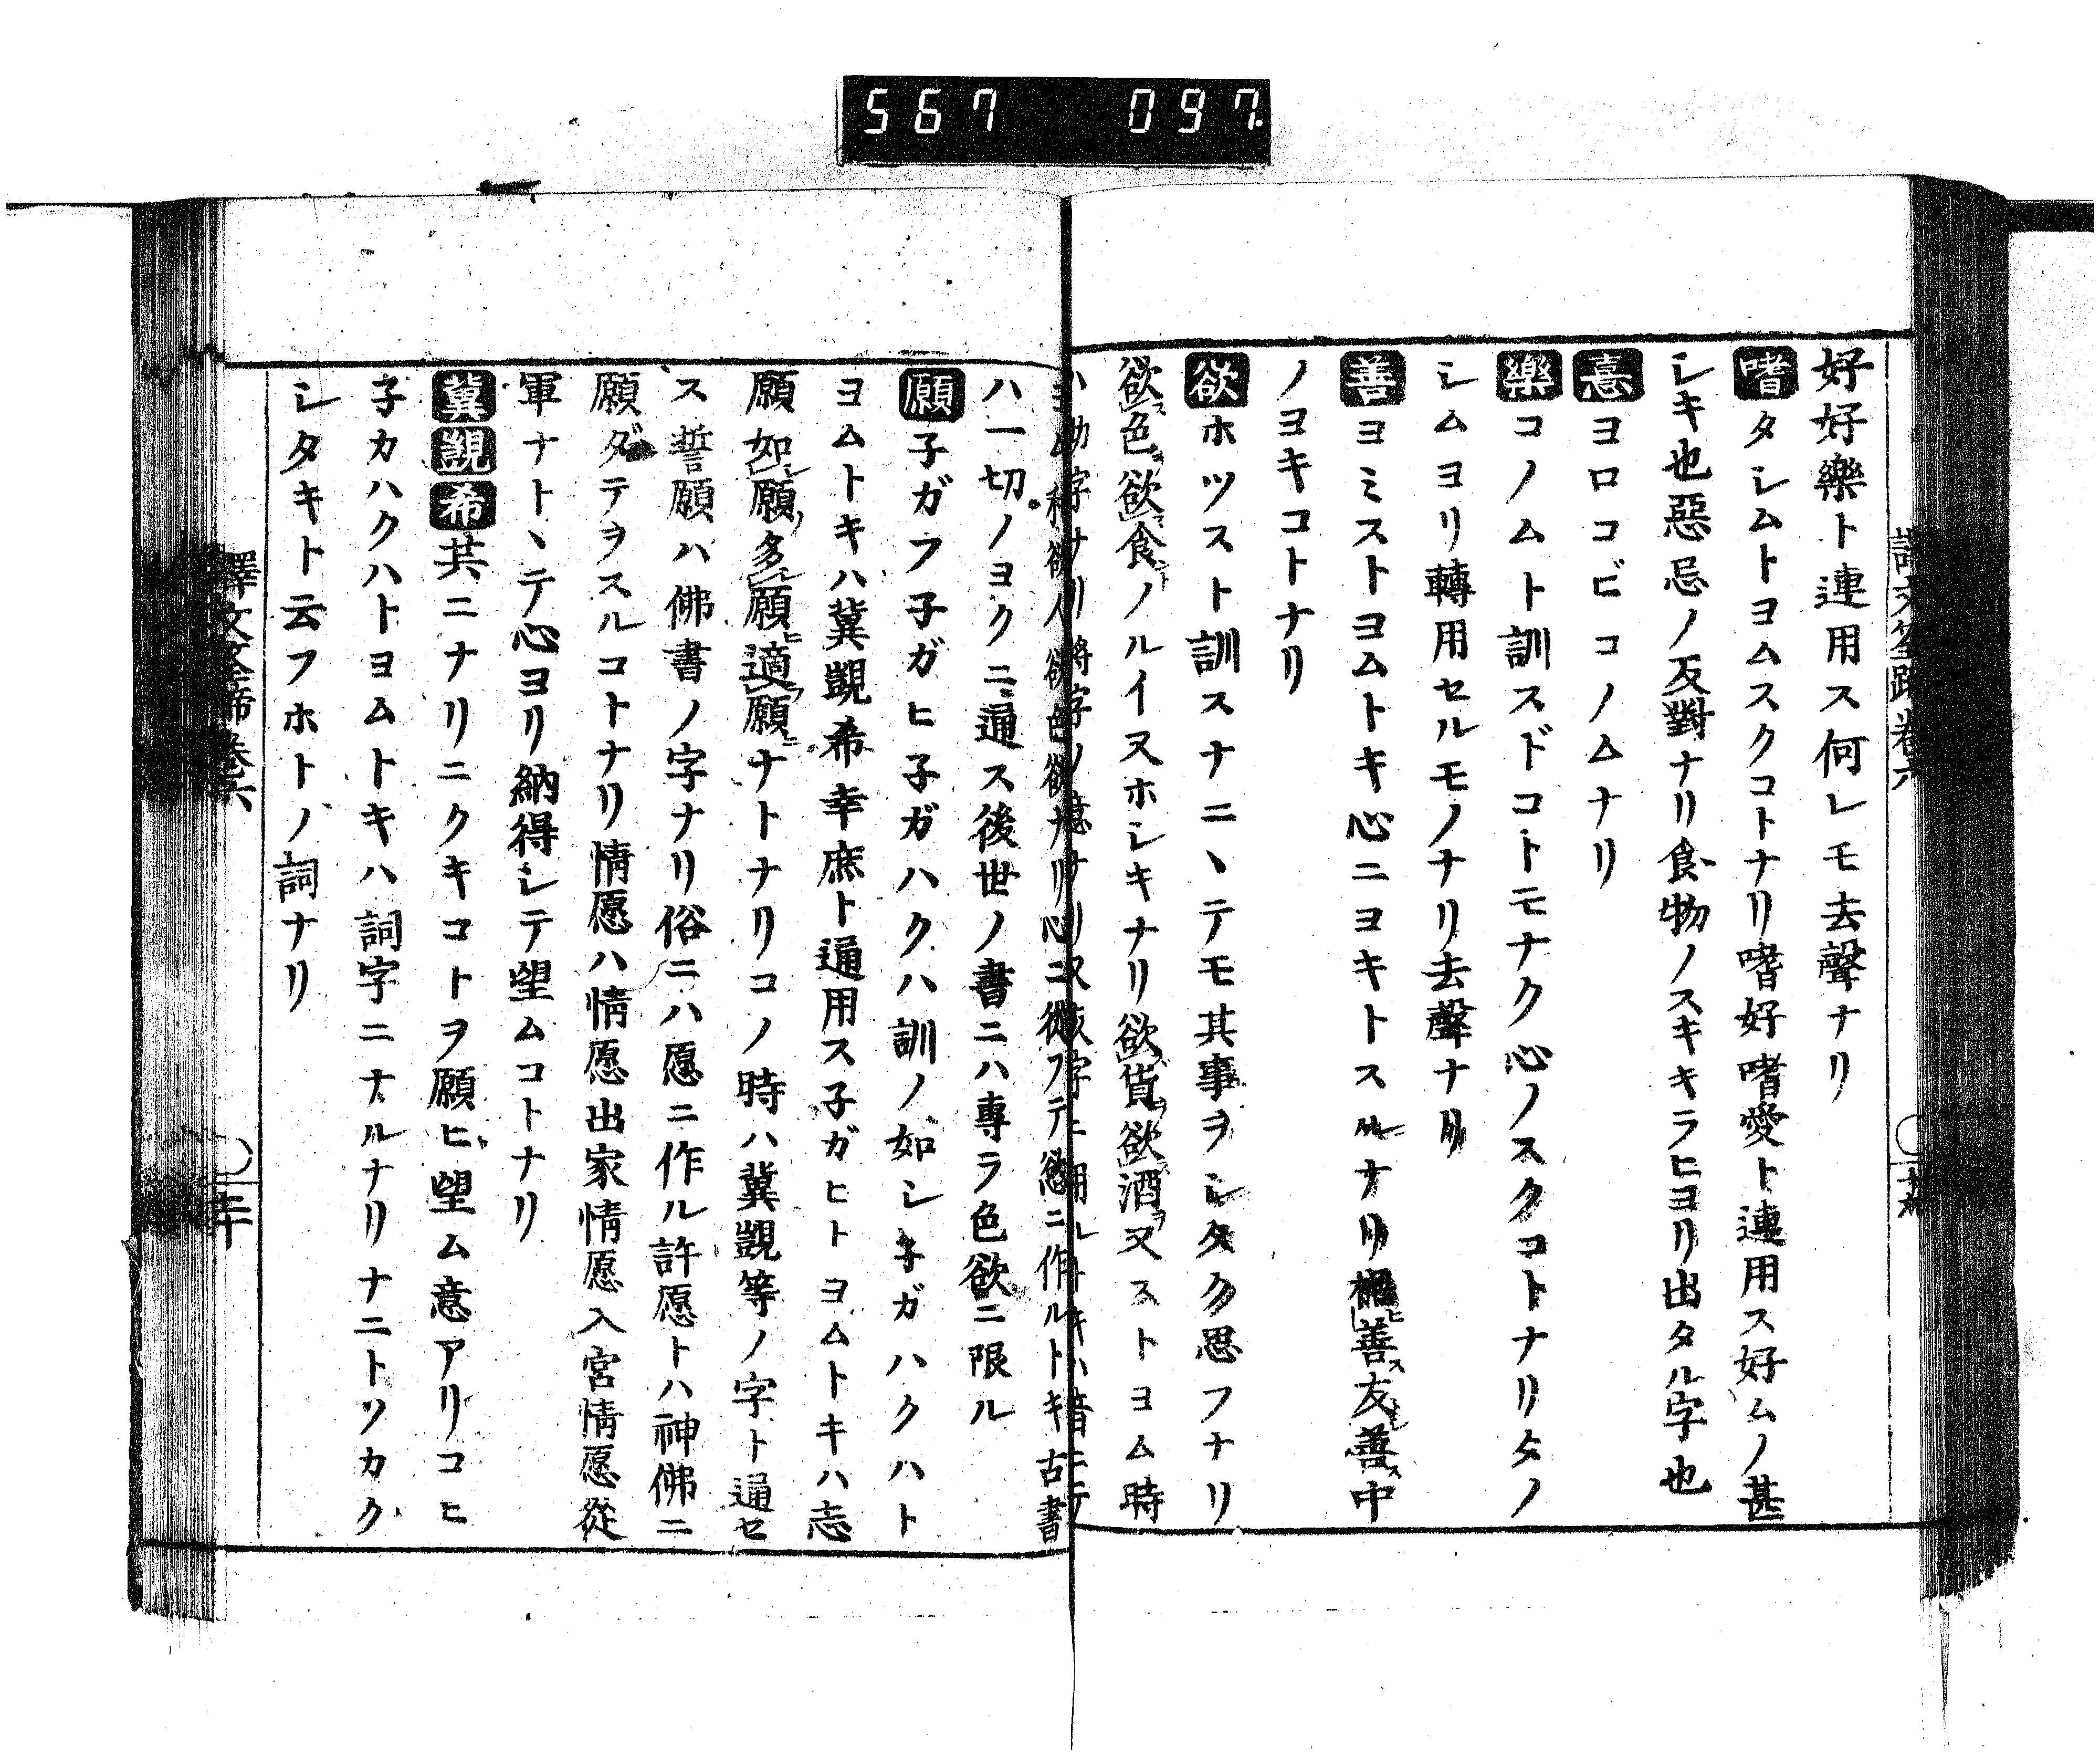 567 097.
好好樂ト連用ス何レモ去聲ナリ
嗜タシムトヨムスクコトナリ嗜好嗜愛ト連用ス好ムノ甚
シキ也惡忌ノ反對ナリ食物ノスキキラヒヨリ出タル字也
憙ヨロコビコノムナリ
樂コノムト訓スドコトモナク心ノスクコトナリタノ
シムヨリ轉用セルモノナリ去聲ナリ
善ヨミストヨムトキ心ニヨキトスルナリ善友善中
ノヨキコトナリ
欲ホツスト訓スナニヽテモ其事ヲシタク思フナリ
欲色欲食ノルイ又ホシキナリ欲貨欲酒又ストヨム時
ハ助字ナリ將字ノ意ナリ又
欲人欲色欲ナリ心ニ從フテ慾ニ作ルトキ古書
ハ一切ノヨクニ通ス後世ノ書ニハ專ラ色欲ニ限ル
願子ガフ子ガヒ子ガハクハ訓ノ如シ子ガハクハト
ヨムトキハ冀覬希幸庶ト通用ス子ガヒトヨムトキハ志
願如願多願適願ナトナリコノ時ハ冀覬等ノ字ト通セ
ス誓願ハ佛書ノ字ナリ俗ニハ愿ニ作ル許愿トハ神佛ニ
願ダテヲスルコトナリ情愿ハ情愿出家情愿入宮情愿從
軍ナトヽテ心ヨリ納得シテ望ムコトナリ
冀覬希共ニナリニクキコトヲ願ヒ望ム意アリコヒ
子カハクハトヨムトキハ詞字ニナルナリナニトソカク
シタキト云フホトノ詞ナリ
譯文筌蹄卷六 二十